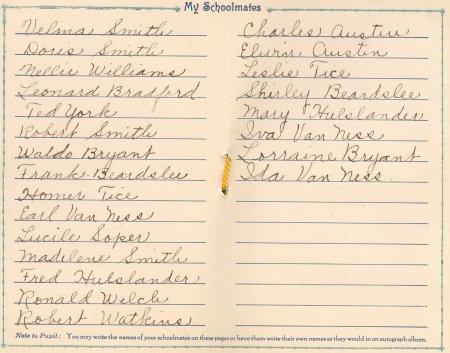 My Schoolmates
Velma Smith
Doris Smith
Nellie Williams
Leonard Bradford
Ted York
Robert Smith
Waldo Bryant
Frank Beardslee
Homer Tice
Earl Van Ness
Lucile Soper
Madelene Smith
Fred Hulslander
Ronald Welch
Robert Watkins
Charles Austin
Elwin Austin
Leslie Tice
Shirley Beardslee
Mary Hulslander
Iva Van Ness
Lorraine Bryant
Ida Van Ness
Note to Pupil: You may write the names of your schoolmates on these pages or have them write their own names as they would in an autograph album.